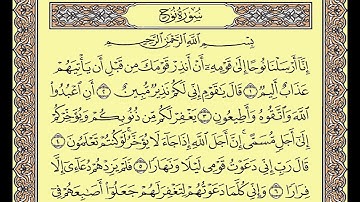 سُورَةُ نُوحٍ
بِسْمِ اللَّهِ الرَّحْمَٰنِ الرَّحِيمِ
إِنَّا أَرْسَلْنَا نُوحًا إِلَىٰ قَوْمِهِ أَنْ أَنذِرْ قَوْمَكَ مِن قَبْلِ أَن يَأْتِيَهُمْ
عَذَابٌ أَلِيمٌ ١ قَالَ يَٰقَوْمِ إِنِّي لَكُمْ نَذِيرٌ مُّبِينٌ ٢ أَنِ اعْبُدُوا
اللَّهَ وَاتَّقُوهُ وَأَطِيعُونِ ٣ يَغْفِرْ لَكُم مِّن ذُنُوبِكُمْ وَيُؤَخِّرْكُمْ
إِلَىٰ أَجَلٍ مُّسَمًّى إِنَّ أَجَلَ اللَّهِ إِذَا جَاءَ لَا يُؤَخَّرُ لَوْ كُنتُمْ تَعْلَمُونَ ٤
قَالَ رَبِّ إِنِّي دَعَوْتُ قَوْمِي لَيْلًا وَنَهَارًا ٥ فَلَمْ يَزِدْهُمْ دُعَاءِي إِلَّا
فِرَارًا ٦ وَإِنِّي كُلَّمَا دَعَوْتُهُمْ لِتَغْفِرَ لَهُمْ جَعَلُوا أَصَٰبِعَهُمْ فِي